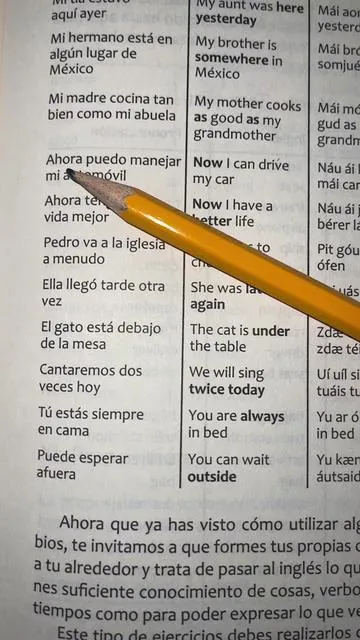 aquí ayer
My aunt was here
yesterday
Mi hermano está en
algún lugar de
México
My brother is
somewhere in
México
Mi madre cocina tan
bien como mi abuela
My mother cooks
as good as my
grandmother
Ahora puedo manejar
mi
Now I can drive
my car
Náu ái
mái
Ahora
vida mejor
Now I have a
better life
Náu ái
bérer
Pedro va a la iglesia
a menudo
to
Pit góu
ófen
Ella llegó tarde otra
vez
She was
again
El gato está debajo
de la mesa
The cat is under
the table
Cantaremos dos
veces hoy
We will sing
twice today
Uí uíl
Tú estás siempre
en cama
You are always
in bed
Yu ar
in bed
Puede esperar
afuera
You can wait
outside
Yu kæn
áutsaid
Ahora que ya has visto cómo utilizar
bios, te invitamos a que formes tus propias
a tu alrededor y trata de pasar al inglés lo
nes suficiente conocimiento de cosas,
tiempos como para poder expresar lo que
Este tipo de ejercicios debes realizarlos